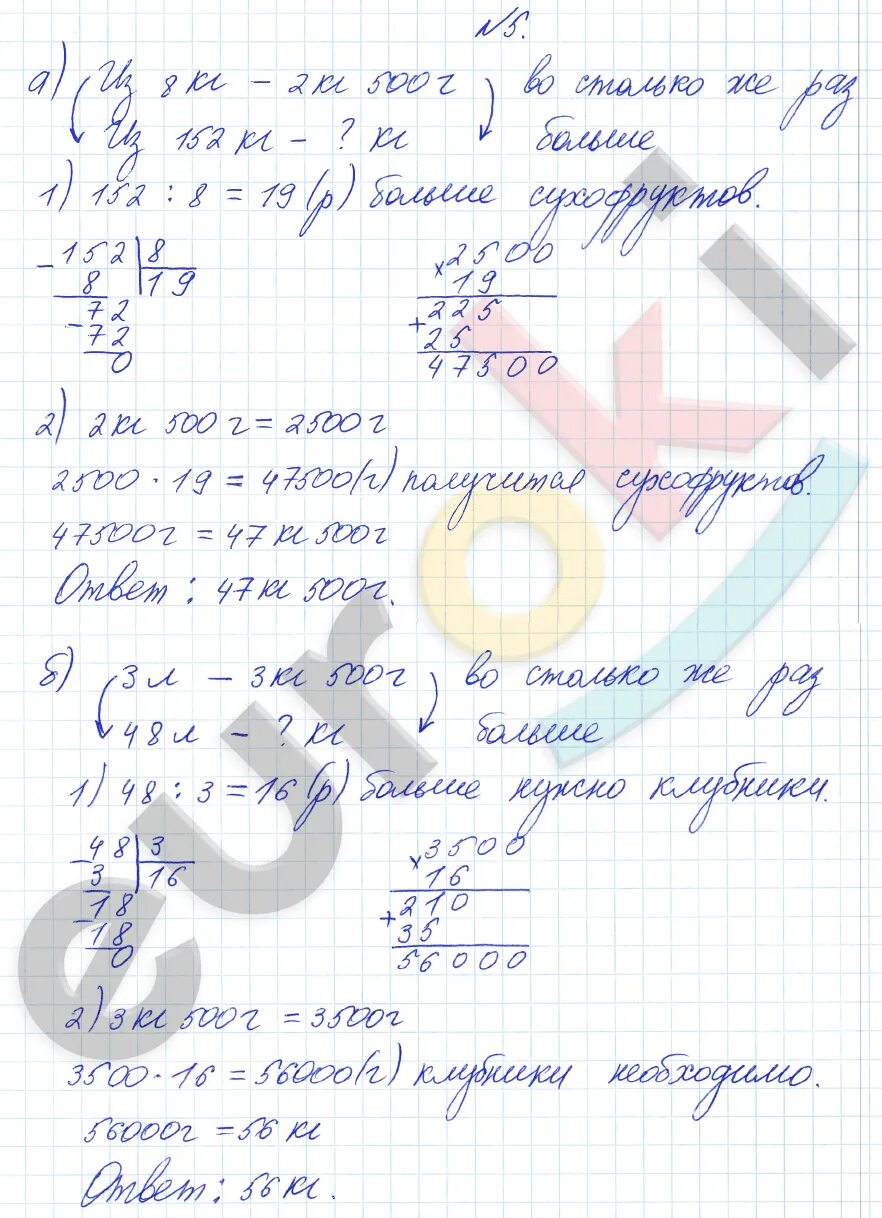 №5.
а) Из 8 кг – 2 кг 500 г во столько же раз
Из 152 кг – ? кг больше
1) 152 : 8 = 19 (р) больше сухофруктов.
152 | 8
8 | 19
72
72
0
× 2500
19
+ 225
25
47500
2) 2 кг 500 г = 2500 г
2500 · 19 = 47500 (г) получится сухофруктов.
47500 г = 47 кг 500 г
Ответ: 47 кг 500 г.
б) 3 л – 3 кг 500 г во столько же раз
48 л – ? кг больше
1) 48 : 3 = 16 (р) больше нужно клубники.
48 | 3
3 | 16
18
18
0
× 3500
16
+ 210
35
56000
2) 3 кг 500 г = 3500 г
3500 · 16 = 56000 (г) клубники необходимо.
56000 г = 56 кг
Ответ: 56 кг.
euroki